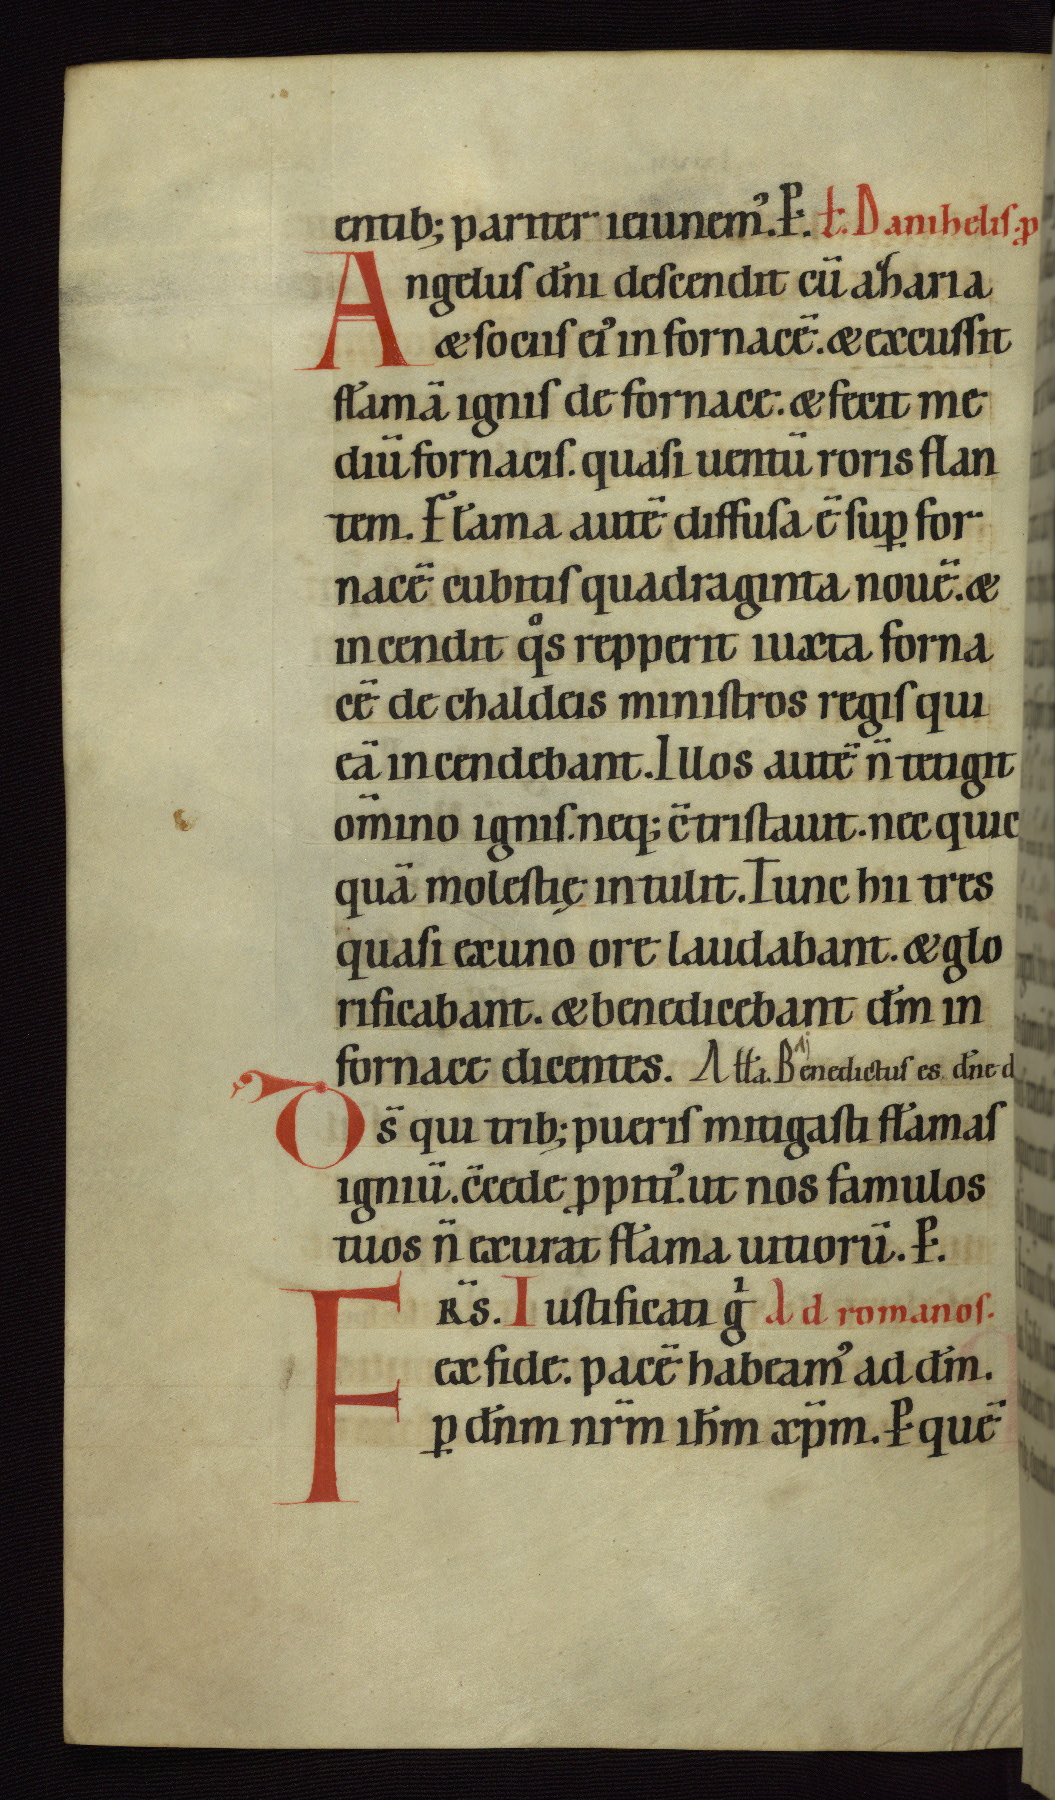 entib; pariter ieiunem᾿. P. ł. Danihelis. ꝓ
Angelus dn̄i descendit cū aharia
& sociis ei᾿ in fornacē. & excussit
flamā ignis de fornace. & fecit me
diū fornacis. quasi uentū roris flan
tem. Flama autē diffusa ē suꝑ for
nacē cubitis quadraginta nouē. &
incendit qͦs repperit iuxta forna
cē de chaldeis ministros regis qui
eā incendebant. Illos autē n̄ tetigit
om̄ino ignis. neq; c̄tristauit. nec quic
quā molestię intulit. Tunc hii tres
quasi ex uno ore laudabant. & glo
rificabant. & benedicebant dm̄ in
fornace dicentes. Ałła. Benedictus es dn̄e d
Ds̄ qui trib; pueris mitigasti flamas
igniū. c̄cede ꝓpiti᾿. ut nos famulos
tuos n̄ exurat flama uitiorū. P.
FRs̄. Iustificati gͥ Ad romanos.
ex fide. pacē habeam᾿ ad dm̄.
ꝑ dn̄m nr̄m ih̄m xp̄m. P quē